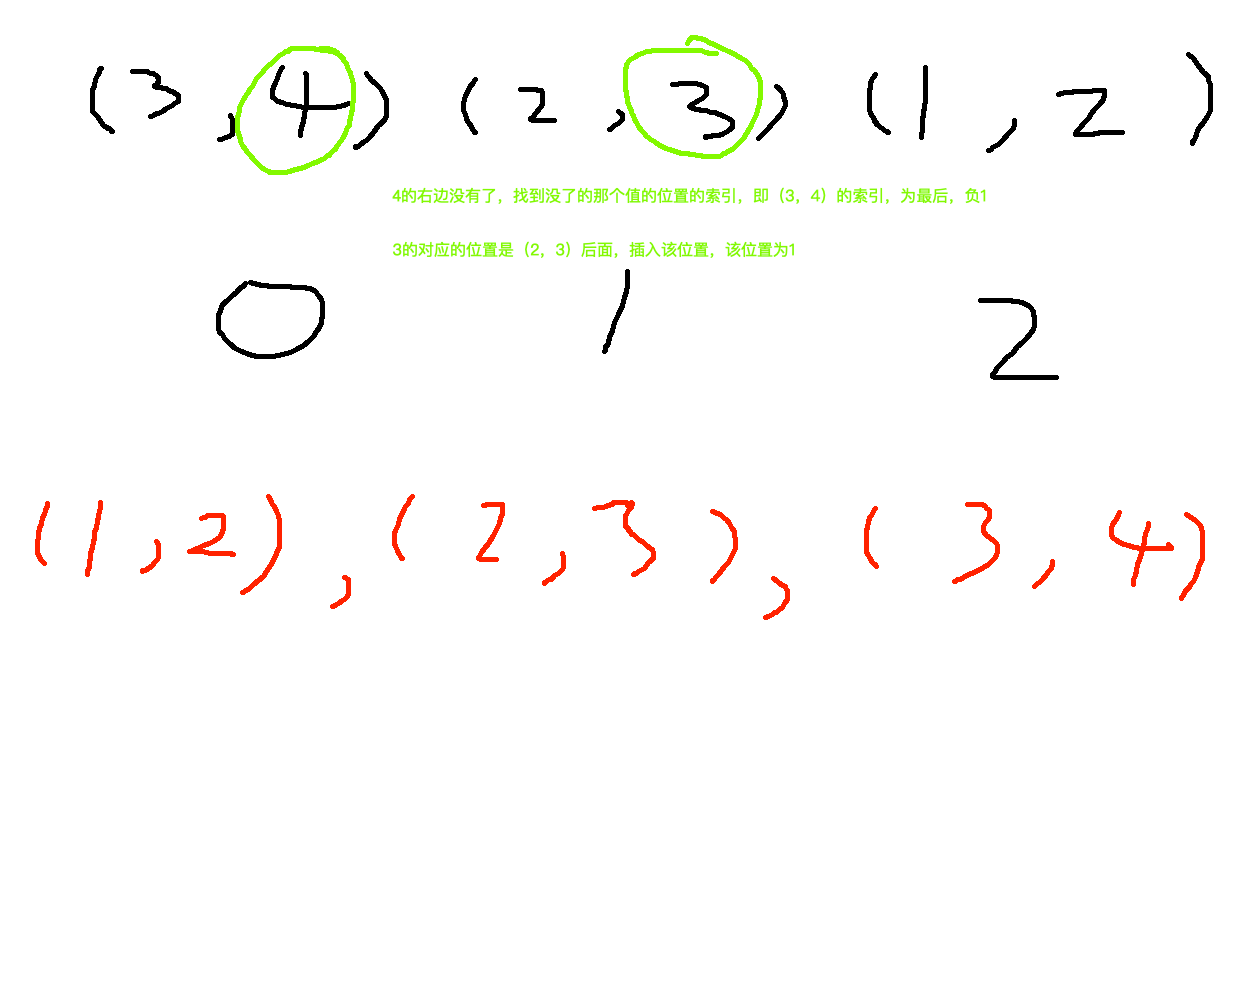 (3,4) (2,3) (1,2)
4的右边没有了，找到没了的那个值的位置的索引，即（3，4）的索引，为最后，负1
3的对应的位置是（2，3）后面，插入该位置，该位置为1
0 1 2
(1,2),(2,3),(3,4)